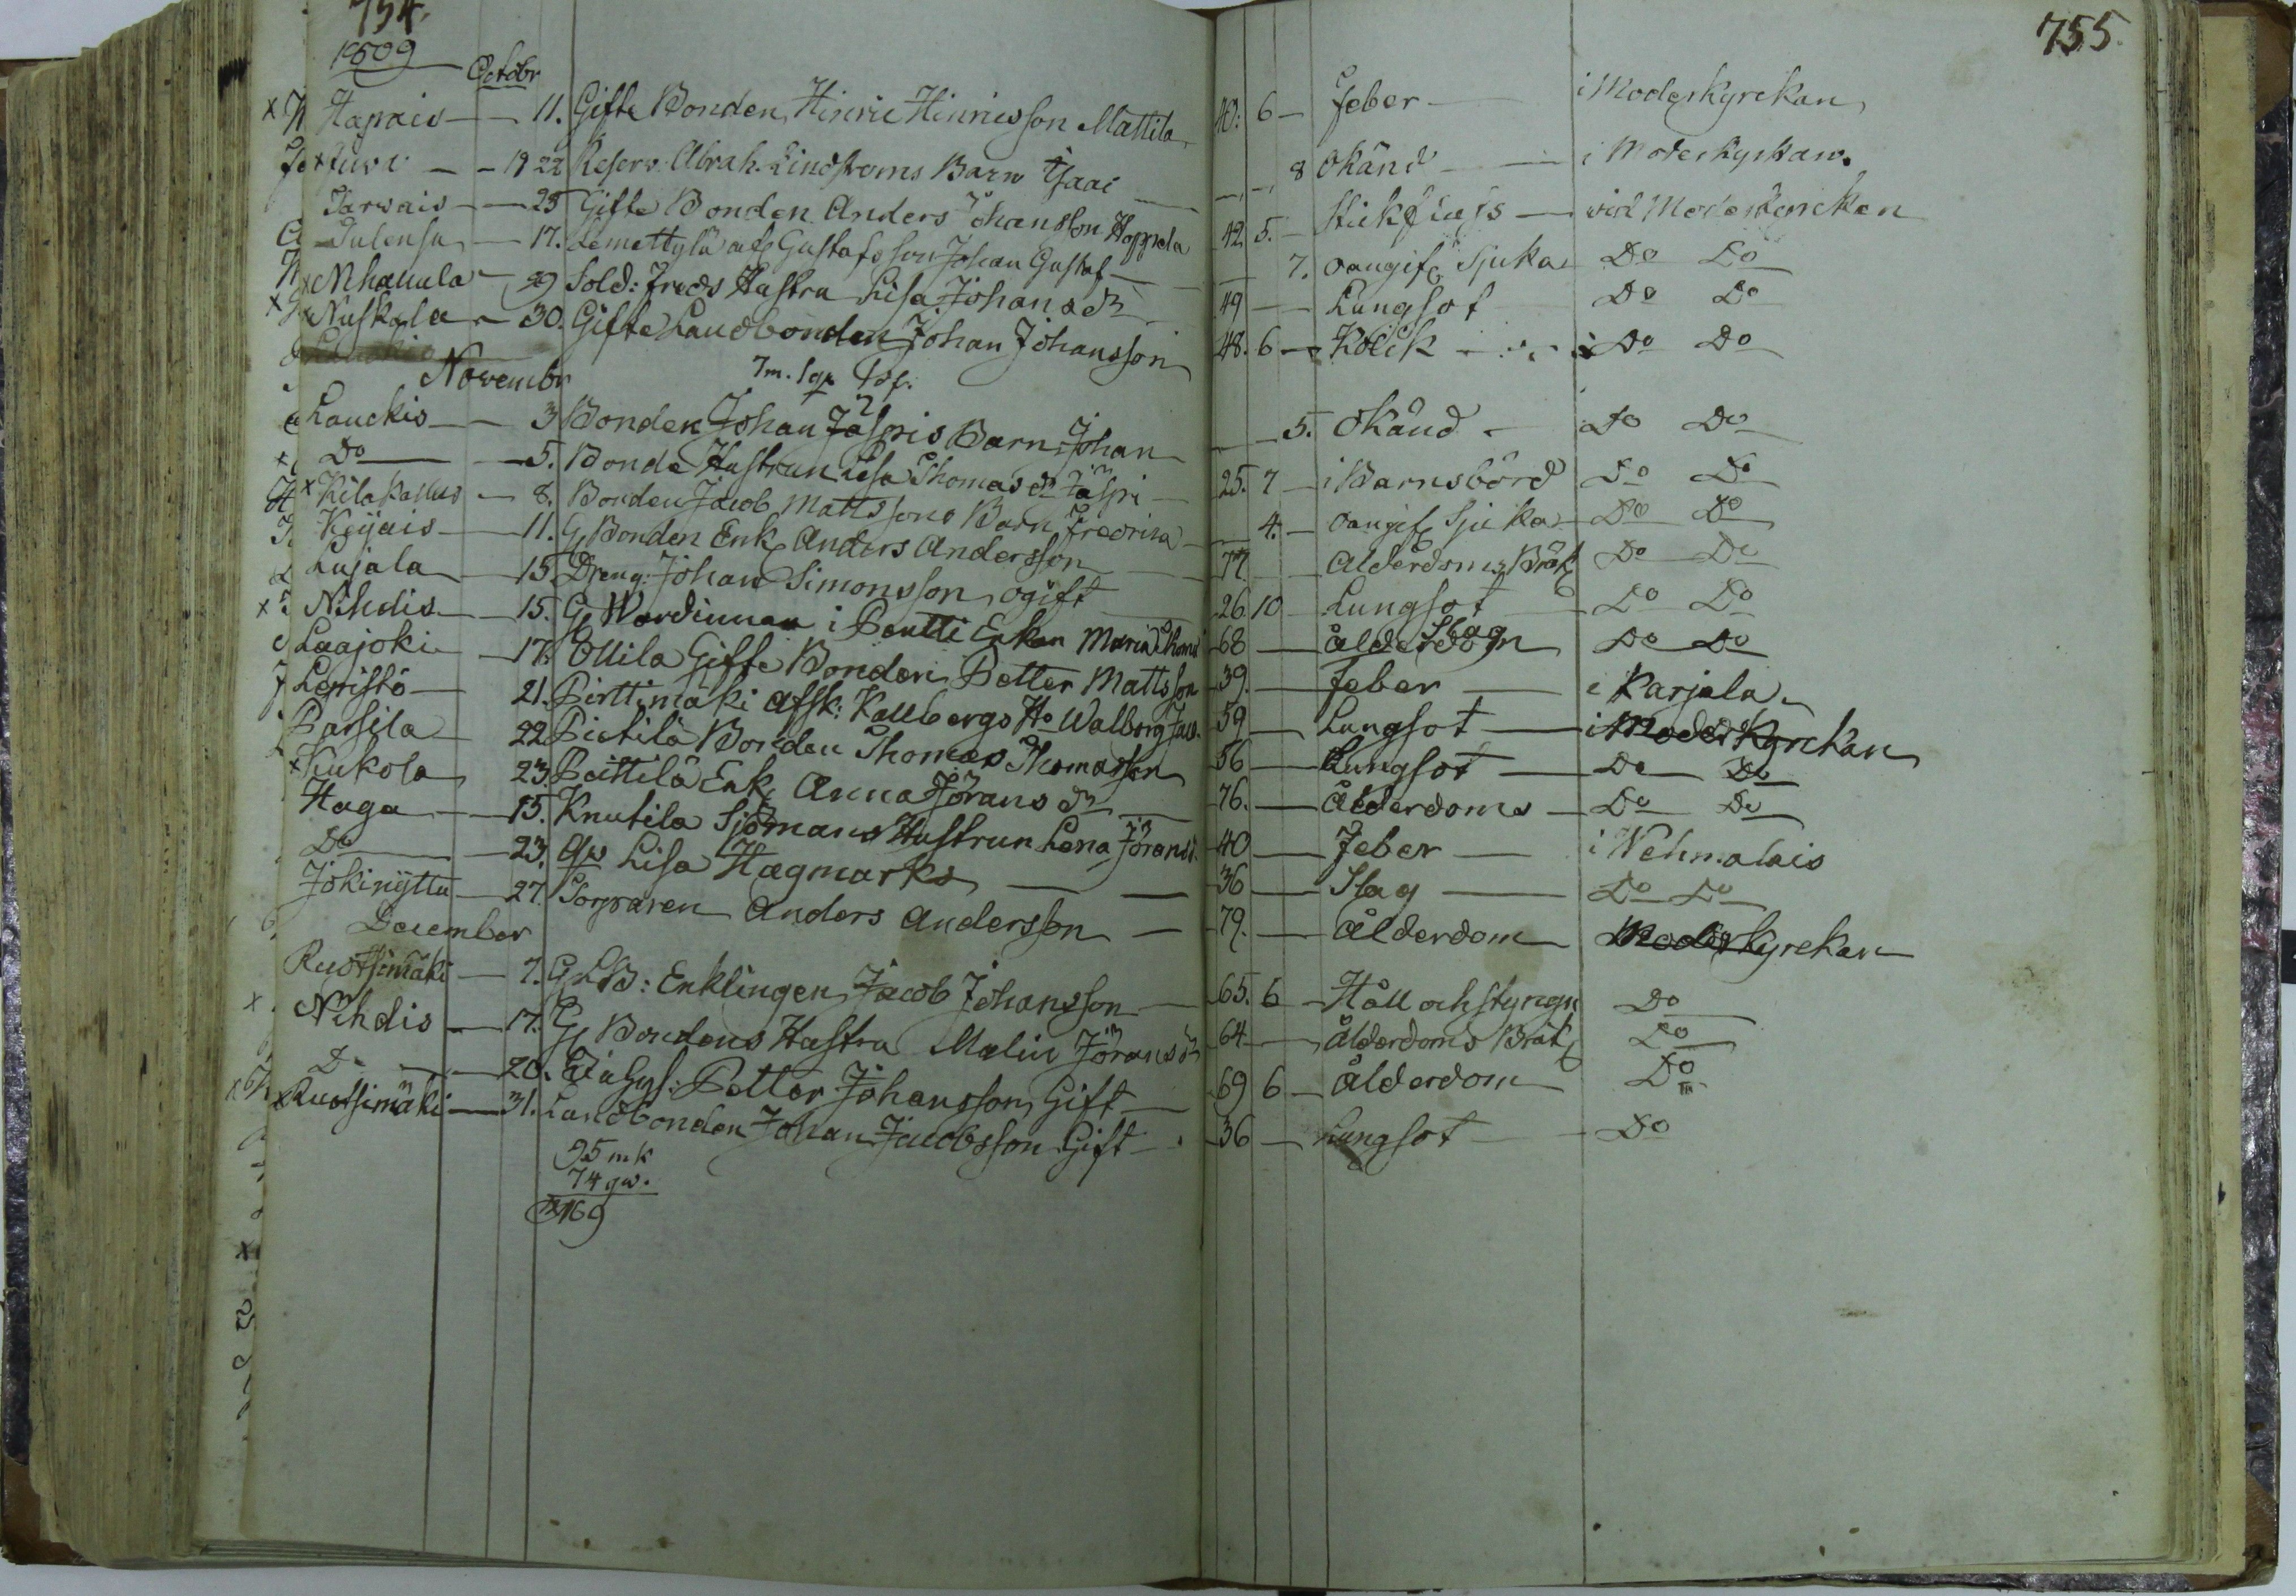 754.
755.
1809 Octobr
Hapais 11. Gifte Bonden Hinric Hinricsson Mattila 40: 6 feber i Moderkyrckan
19 22 Reserv. Abrah. Lindstroms Barn Isaac 8 Okänd i Moderkyrkan
Jarvais 25 Gifte Bonden Anders Johansson Hoppela 42 5. Stickfluss vid Moderkyrckan
17. Lemettylä Gustafsson Johan Gustaf 7. oangif Sjuka Do Do
Nihauula 29 Sold: Freds Hustru Lisa Johansdr 49 Lungsot Do Do
Nuskala 30. Gifte Landbonden Johan Johansson 48. 6 Kolik Do Do
Novembr 7m.
Lauckis 3 Bonden Johan Jaspris Barn Johan 5. Okänd Do Do
Do 5. Bonde Hustrun Lisa Thomasdr Jäspri 25. 7 i Barnsbörd Do Do
Kilakallus 8. Bonden Jacob Mattssons Barn Fredrica 4. oangif Sjuka Do Do
Keijais 11. G Bonden Enk Anders Andersson 77. Alderdoms Bräk Do Do
Lujala 15 Dreng: Johan Simonsson, ogift 26 10 Lungsot Do Do
Nihdis 15. G Wardinnan i Pentti Enkan Maria Thoms 68 Slag ålderdom Do Do
Laajoki 17. Ollila Gifte Bonden Petter Mattsson 39. feber i Karjala
Lepistö 21. Pirttimäki afsk: Kallbergs Ho Walborg Jac. 59 Lungsot i Moder Kyrckan
Parsila 22 Pietilä Bonden Thomas Thomasson 56 Lungsot Do Do
Kukola 23. Peittilä Enk Anna Jöransdr 76. Ålderdoms Do Do
Haga 15. Knutila Sjömans Hustrun Lena Jöransd. 40 Feber i Wehmalais
Do 23. qw Lisa Hagmarks 36 Slag Do Do
Jokinÿttu 27. Torparen Anders Andersson 79. Ålderdom Moderkyrckan
December
Ruotsimäki 7. G LB: Enklingen Jacob Johansson 65. 6 Håll och styngn Do
Nihdis 17. G Bondens Hustru Malin Jöransdr 64 Ålderdoms Bräk Do
Do 20. Petter Johansson Gift 69 6 Ålderdom Do
Ruotsimäki 31. Landbonden Johan Jacobsson Gift 36 Lungsot Do
95 mk
74 qw.
169